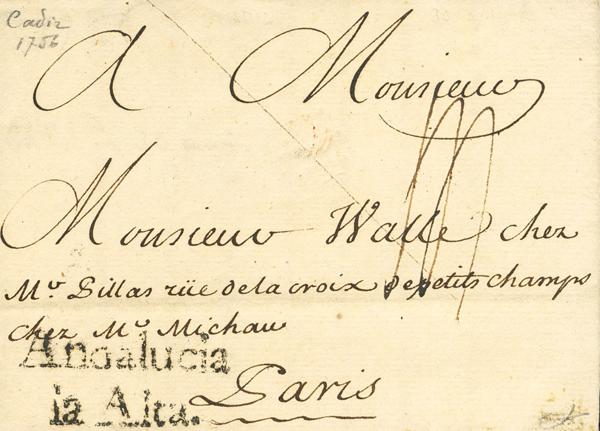 Cadiz
1756
A Monsieur
Monsieur Walle chez
Mr. Lillas rüe de la croix de petits champs
chez Mr Michau
Andalucia
la Alta.
Paris